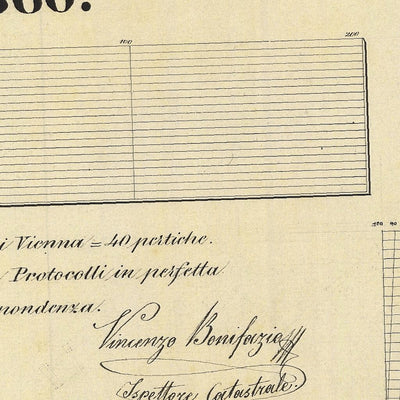 860.
100 200
i Vienna = 40 pertiche.
Protocolli in perfetta
pondenza.
Vincenzo Bonifazio
Ispettore Catastrale.